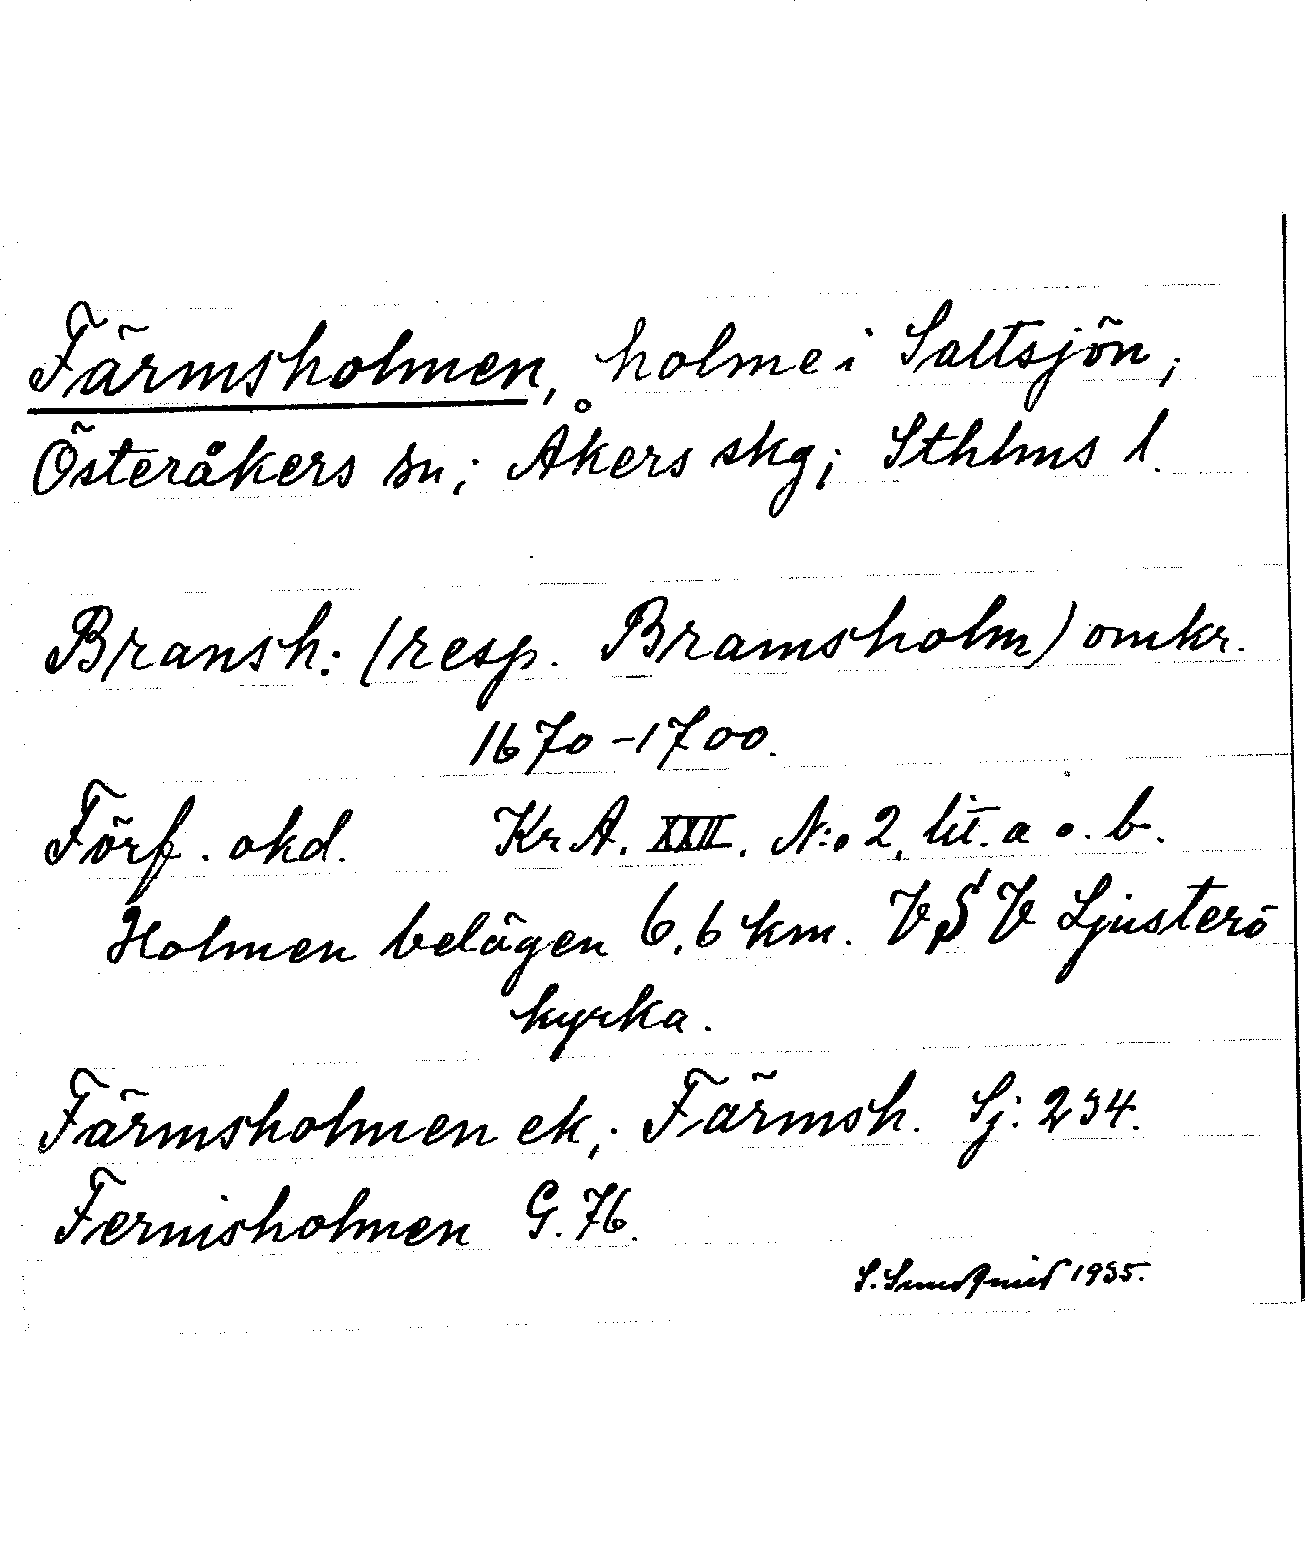 Färmsholmen, holme i Saltsjön;
Österåkers sn; Åkers skg; Sthlms l.
Bransh: (resp. Bramsholm) omkr.
1670-1700.
Förf. okd. Kr A. XXII. N:o 2, lit. a o. b.
Holmen belägen 6,6 km. V S V Ljusterö
kyrka.
Färmsholmen ek; Färmsh. Sj: 234.
Fernisholmen G. 76.
S. Sundqvist 1935.